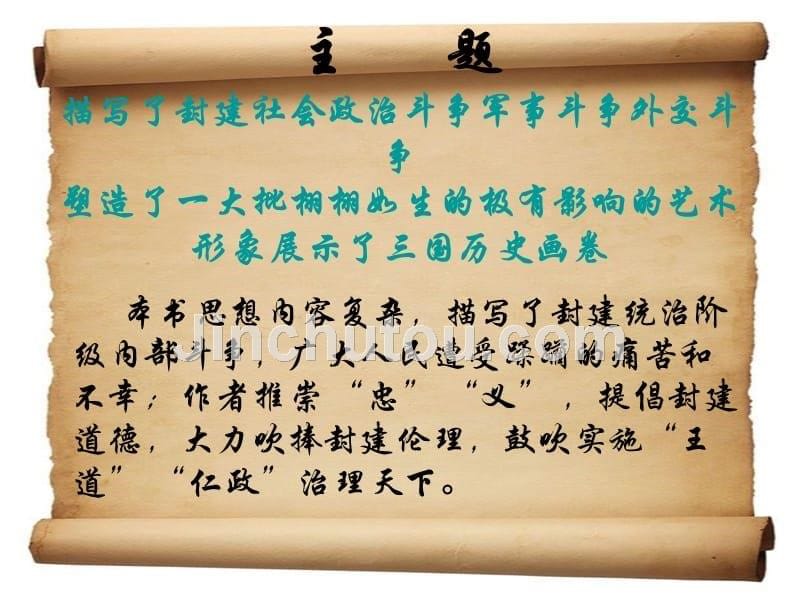 主 题
描写了封建社会政治斗争军事斗争外交斗
争
塑造了一大批栩栩如生的极有影响的艺术
形象展示了三国历史画卷
本书思想内容复杂，描写了封建统治阶
级内部斗争，广大人民遭受蹂躏的痛苦和
不幸；作者推崇“忠”“义”，提倡封建
道德，大力吹捧封建伦理，鼓吹实施“王
道”“仁政”治理天下。
Jinchutou.com